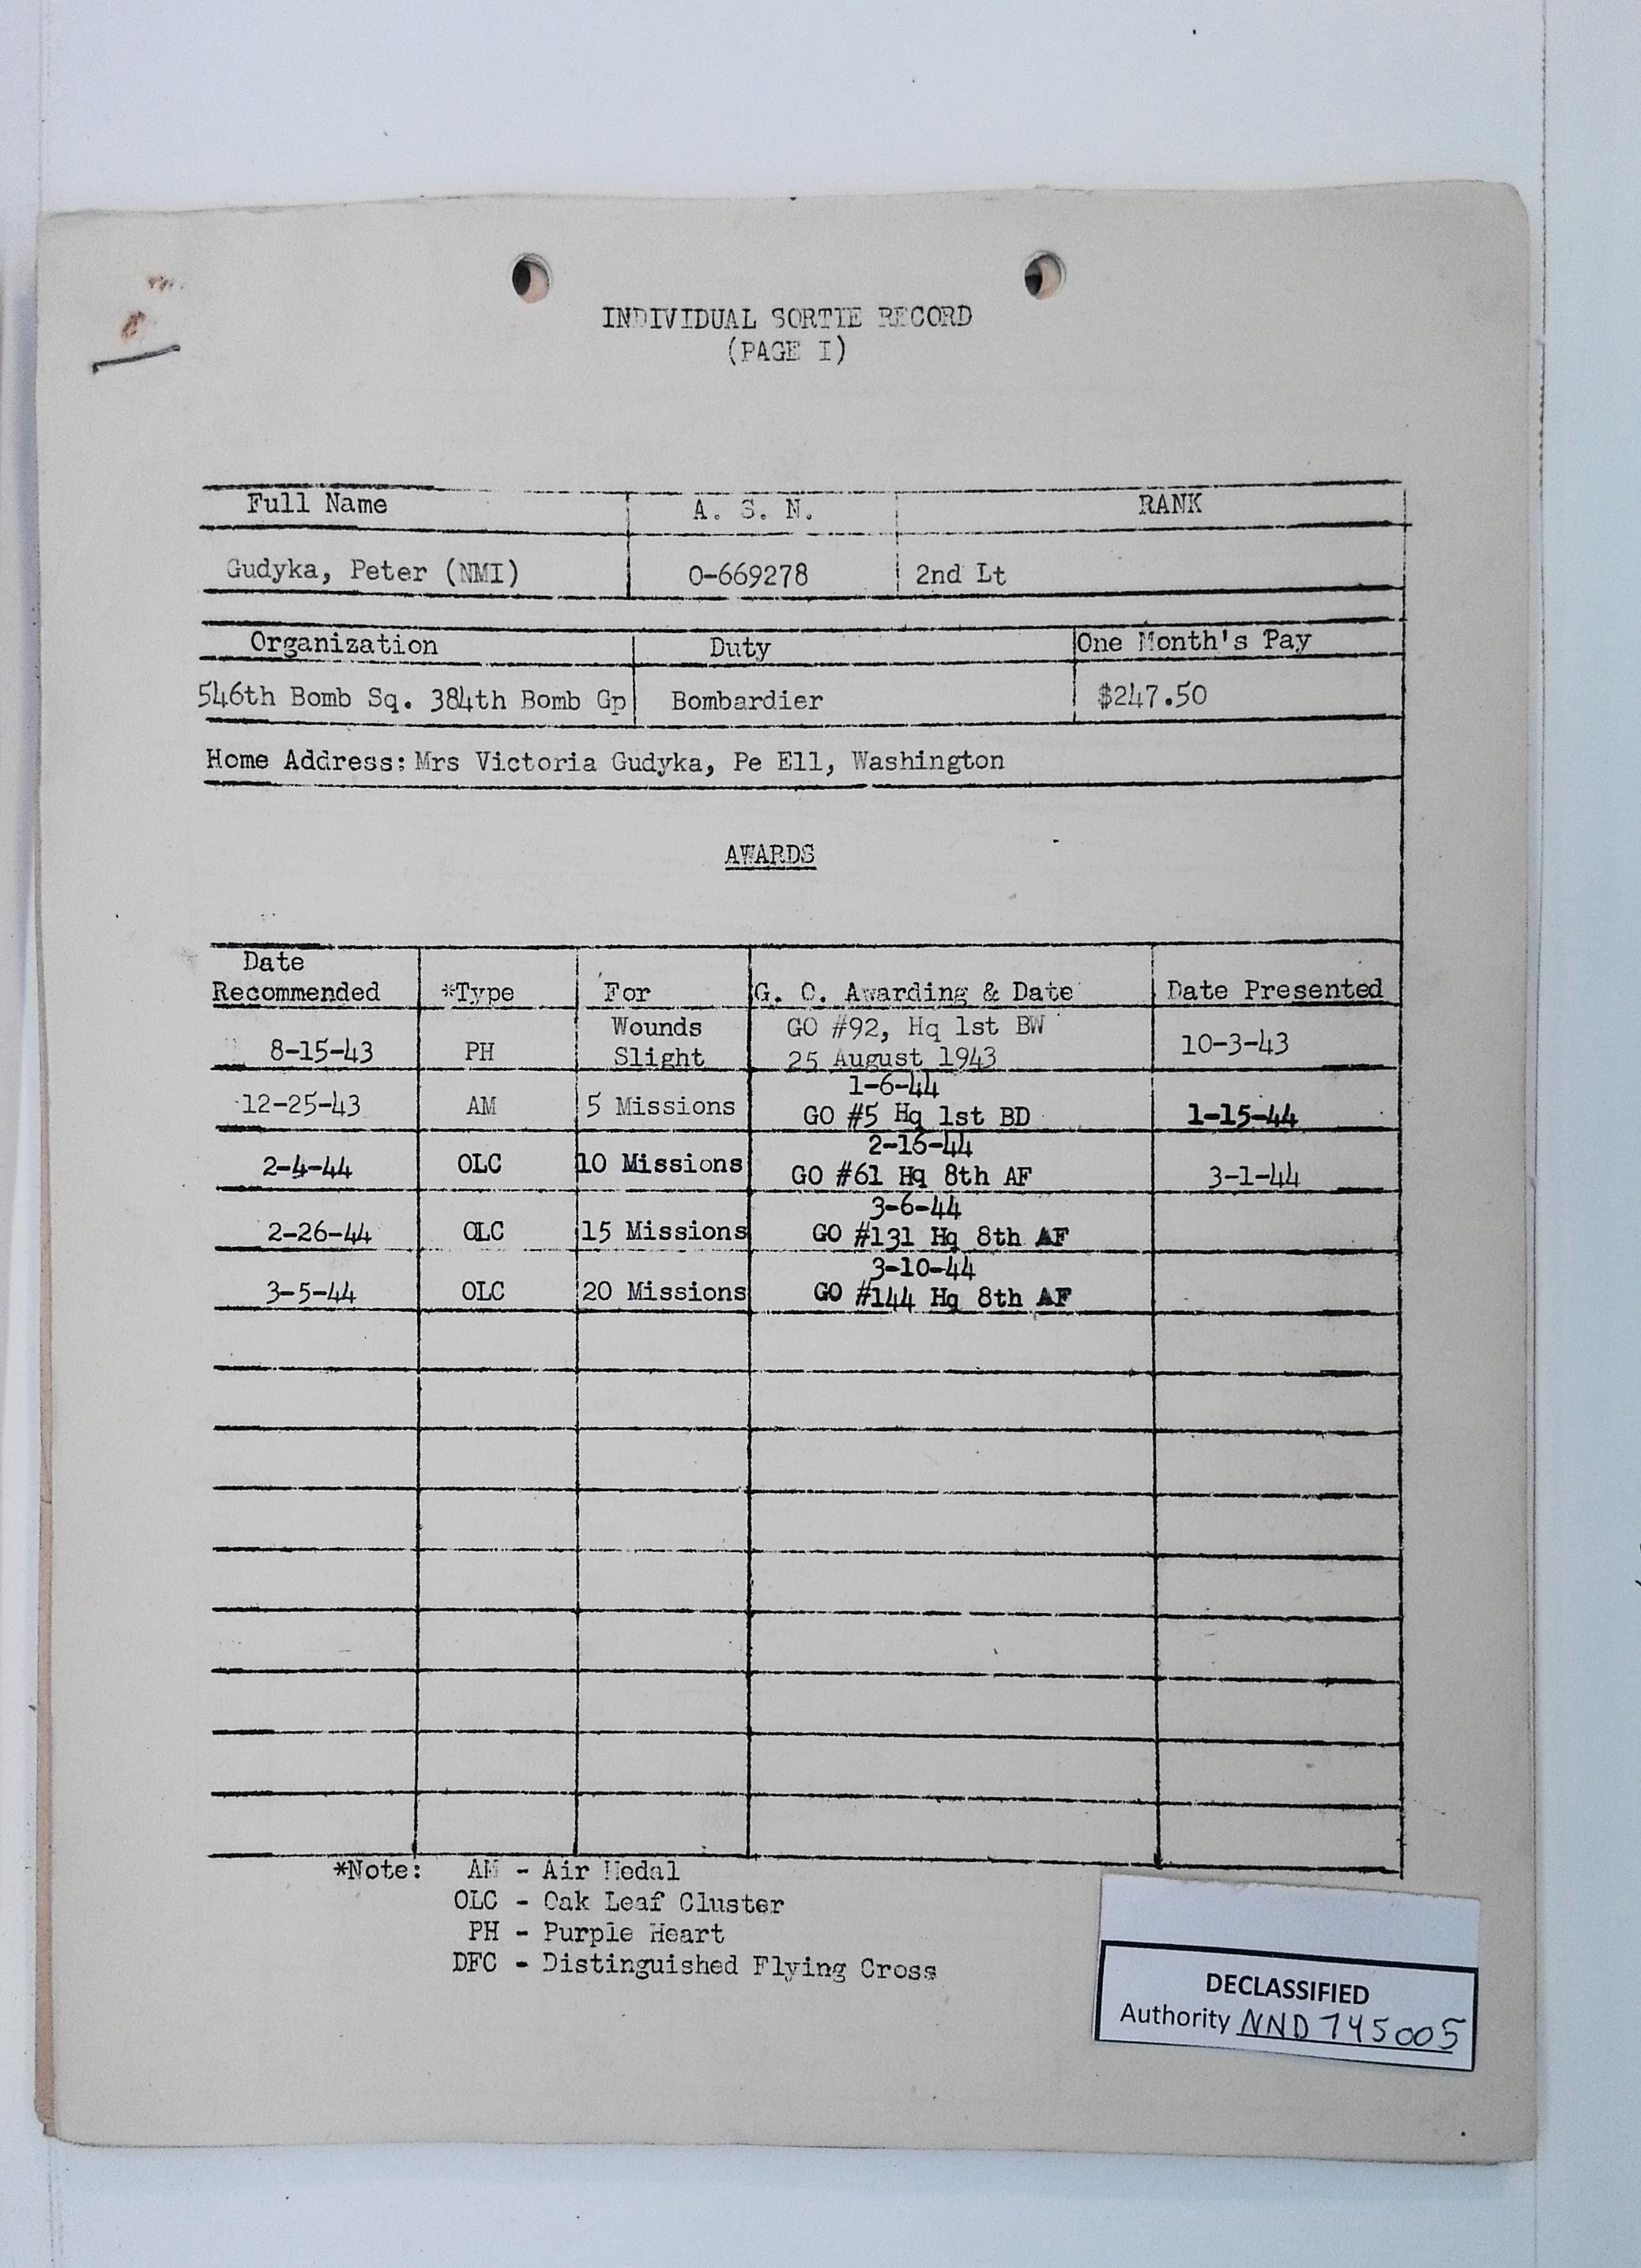 INDIVIDUAL SORTIE RECORD
(PAGE I)
Full Name A. S. N. RANK
Gudyka, Peter (NMI) O-669278 2nd Lt
Organization Duty One Month's Pay
546th Bomb Sq. 384th Bomb Gp Bombardier $247.50
Home Address: Mrs Victoria Gudyka, Pe Ell, Washington
AWARDS
Date
Recommended *Type For G. O. Awarding & Date Date Presented
Wounds GO #92, Hq 1st BW
8-15-43 PH Slight 25 August 1943 10-3-43
1-6-44
12-25-43 AM 5 Missions GO #5 Hq 1st BD 1-15-44
2-16-44
2-4-44 OLC 10 Missions GO #61 Hq 8th AF 3-1-44
3-6-44
2-26-44 OLC 15 Missions GO #131 Hq 8th AF
3-10-44
3-5-44 OLC 20 Missions GO #144 Hq 8th AF
*Note: AM - Air Medal
OLC - Oak Leaf Cluster
PH - Purple Heart
DFC - Distinguished Flying Cross
DECLASSIFIED
Authority NND 745005